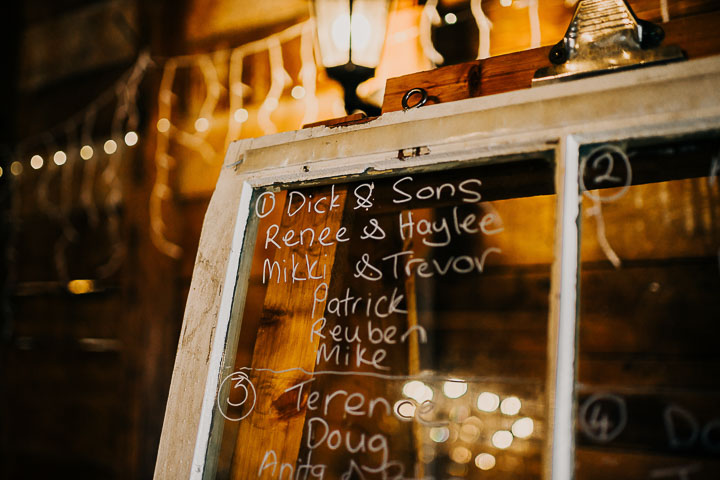 ① Dick & Sons
Renee & Haylee
Mikki & Trevor
Patrick
Reuben
Mike
②
③ Terence
Doug
Anita &
④ Do